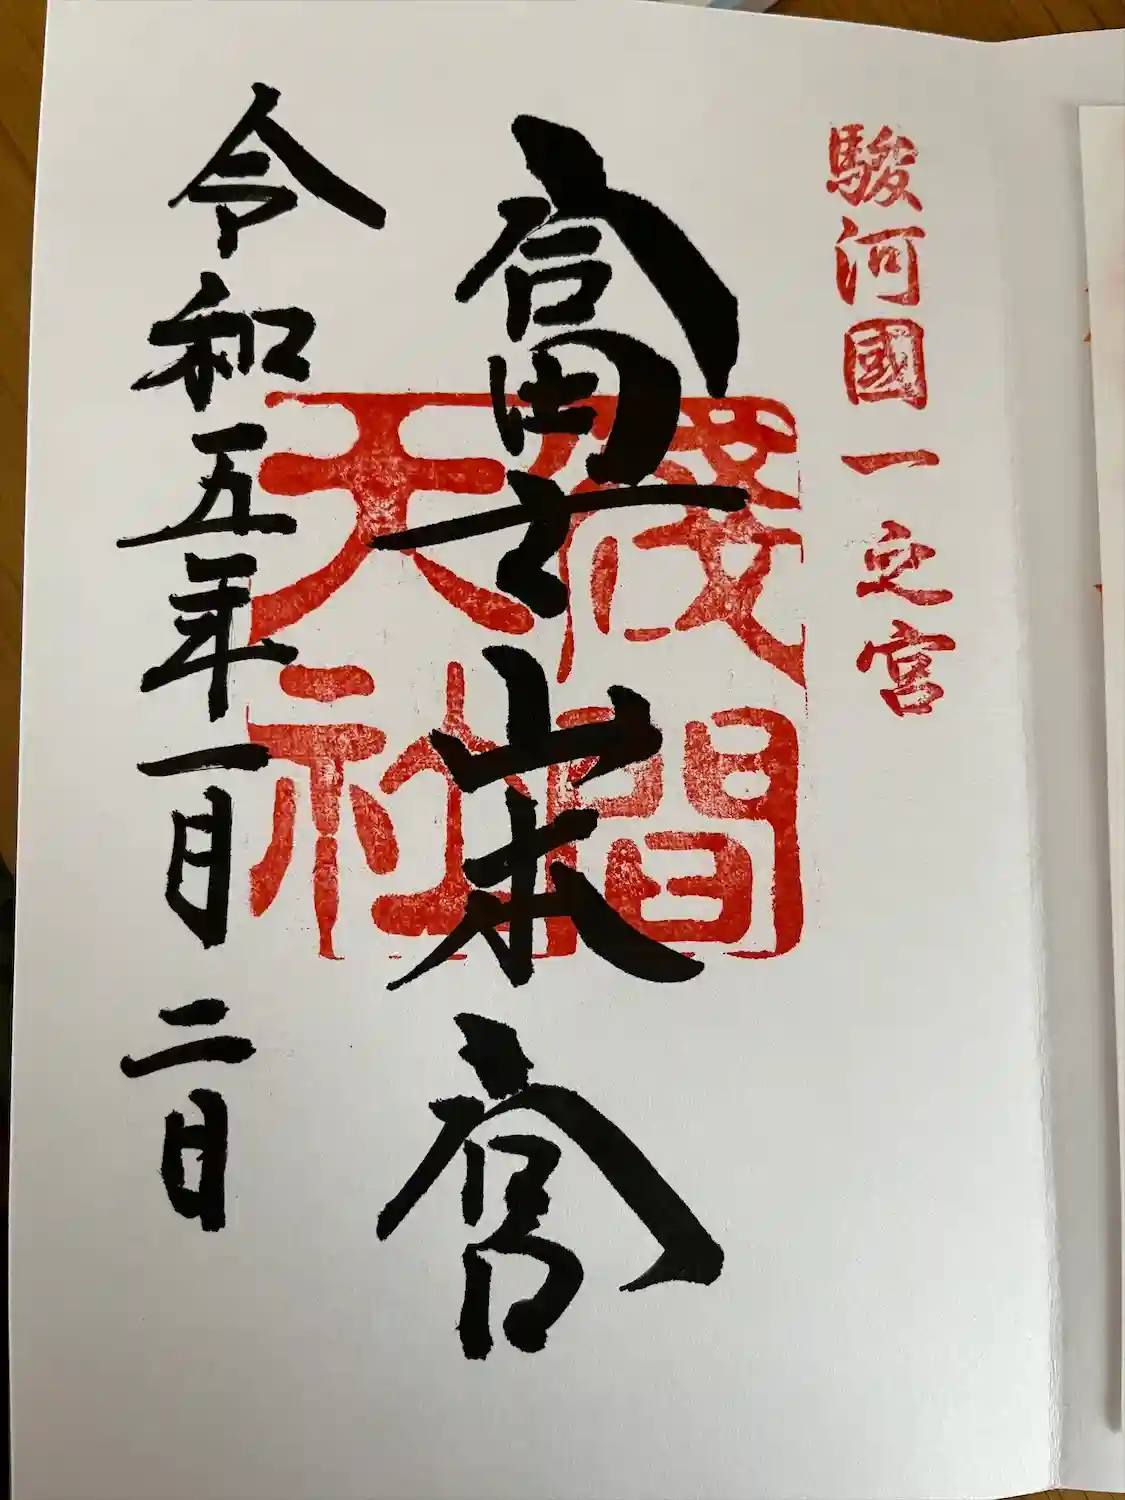 駿河國一之宮
富士山本宮
淺間
天社
令和五年一月二日